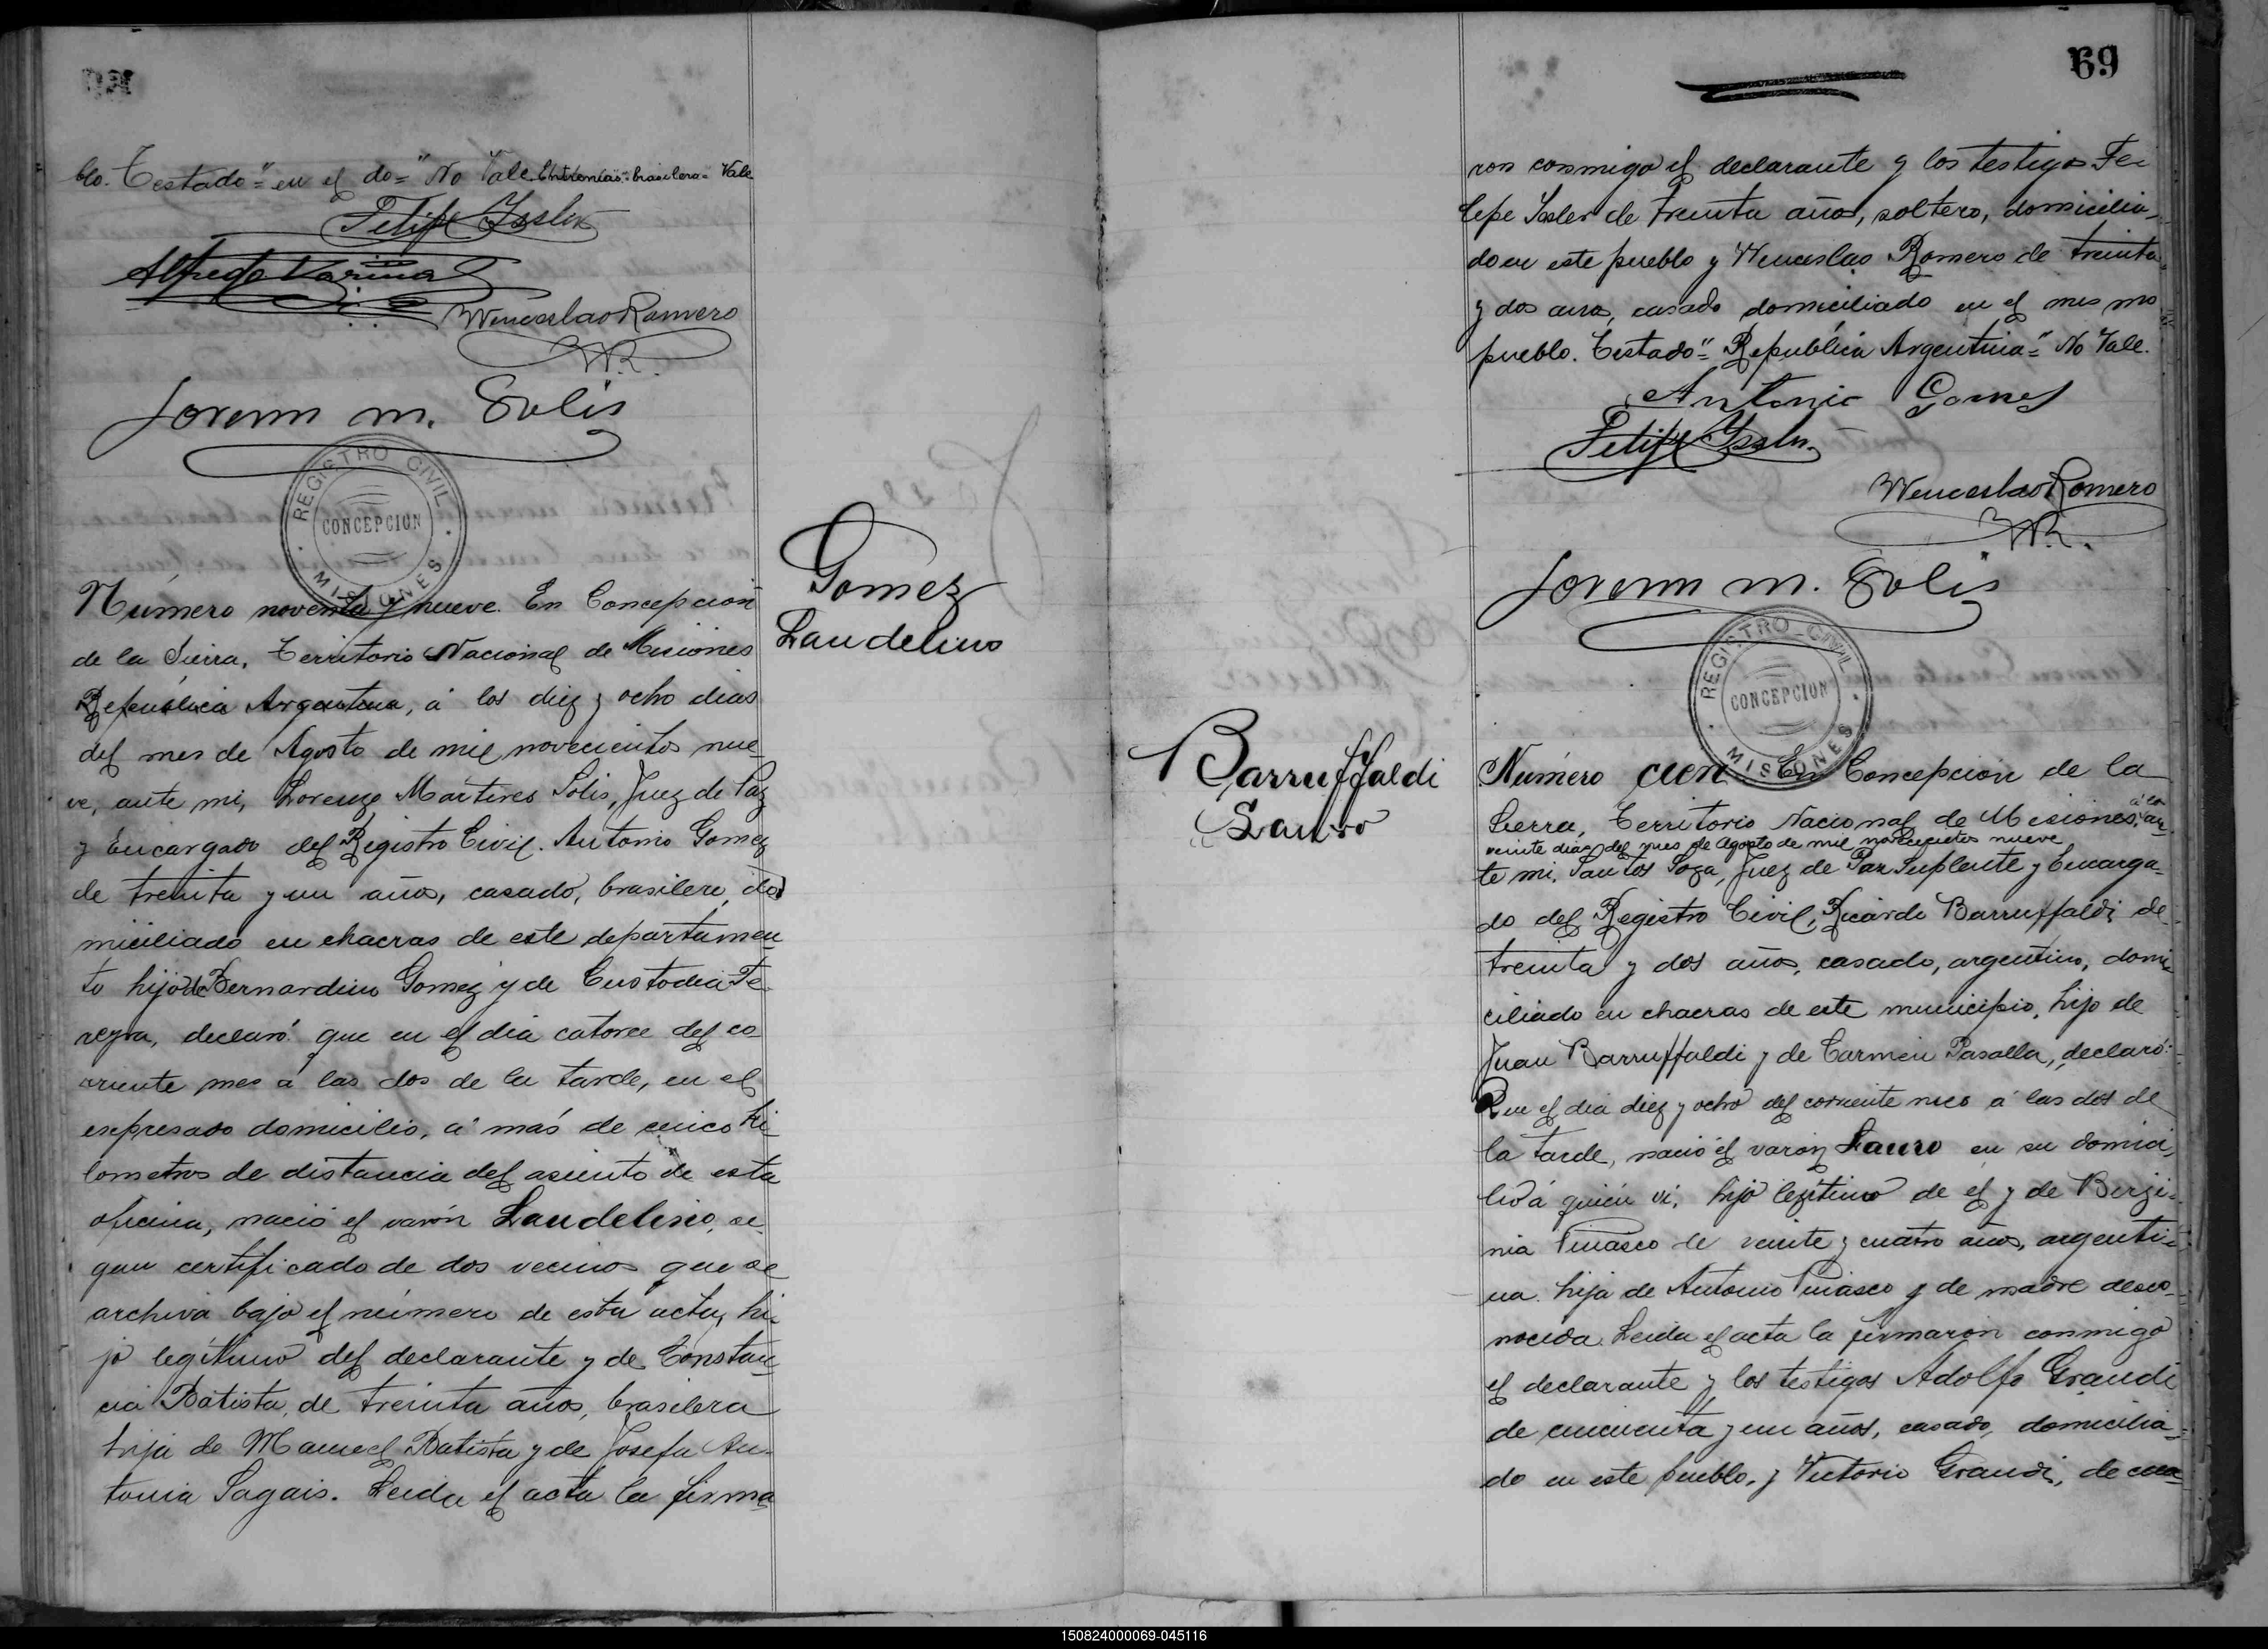 blo. Testado "en el do" No Vale. Entrelineas "brasilera" Vale
Felipe Issler
Alfredo Varina
Wenceslao Romero
W.R.
Lorenzo M. Solis
REGISTRO CIVIL
CONCEPCION
MISIONES
Gomez
Laudelino
Número noventa y nueve. En Concepción
de la Sierra, Territorio Nacional de Misiones
República Argentina, á los diez y ocho dias
del mes de Agosto de mil novecientos nue-
ve, ante mi, Lorenzo Martires Solis, Juez de Paz
y Encargado del Registro Civil. Antonio Gomez
de treinta y un años, casado, brasilero, do-
miciliado en chacras de este departamen-
to hijo de Bernardino Gomez y de Custodia Fe-
reyra, declaró: que en el dia catorce del co-
rriente mes á las dos de la tarde, en el
espresado domicilio, á más de cinco ki-
lometros de distancia del asiento de esta
oficina, nació el varón Laudelino, se-
gun certificado de dos vecinos que se
archiva bajo el número de esta acta, hi-
jo legítimo del declarante y de Constan-
cia Batista, de treinta años, brasilera
hija de Manuel Batista y de Josefa An-
tonia Sagais. Leida el acta la firma-
69
ron conmigo el declarante y los testigos Fe-
lipe Issler de treinta años, soltero, domicilia-
do en este pueblo y Wenceslao Romero de treinta
y dos años, casado domiciliado en el mismo
pueblo. Testado "República Argentina" No Vale.
Antonio Gomes
Felipe Issler
Wenceslao Romero
W.R.
Lorenzo M. Solis
REGISTRO CIVIL
CONCEPCION
MISIONES
Barruffaldi
Lauro
Número cien En Concepción de la
Sierra, Territorio Nacional de Misiones, á los an-
veinte dias del mes de Agosto de mil novecientos nueve
te mi, Santos Soza, Juez de Paz Suplente y Encarga-
do del Registro Civil, Ricardo Barruffaldi de
treinta y dos años, casado, argentino, domi-
ciliado en chacras de este municipio, hijo de
Juan Barruffaldi y de Carmen Pasalla, declaró:
Que el dia diez y ocho del corriente mes á las dos de
la tarde, nació el varón Lauro en su domici-
lio á quién vi, hijo legítimo de el y de Birgi-
nia Piñasco de veinte y cuatro años, argenti-
na. hija de Antonio Piñasco y de madre desco-
nocida. Leida el acta la firmarón conmigo
el declarante y los testigos Adolfo Grandi
de cincuenta y un años, casado, domicilia-
do en este pueblo, y Victorio Grandi, de cua-
150824000069-045116